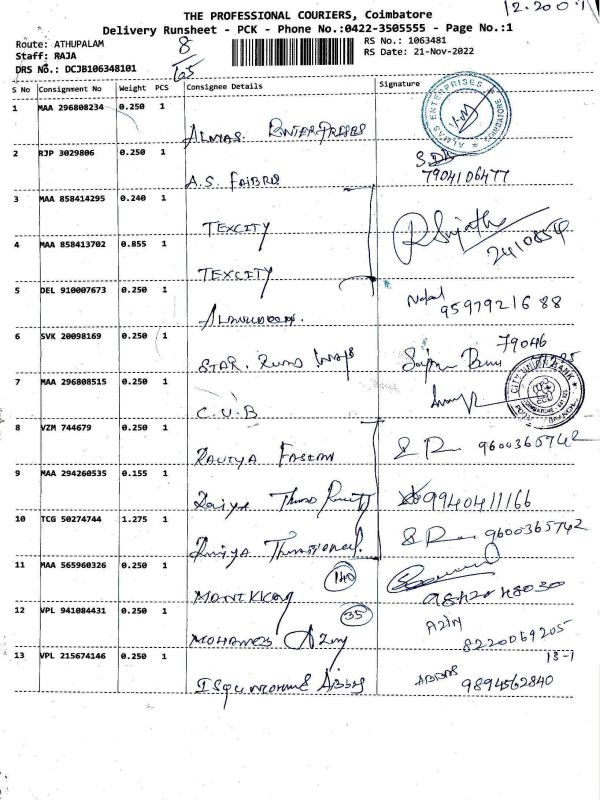 12.200
THE PROFESSIONAL COURIERS, Coimbatore
Delivery Runsheet - PCK - Phone No.:0422-3505555 - Page No.:1
Route: ATHUPALAM 8 RS No.: 1063481
Staff: RAJA 65 RS Date: 21-Nov-2022
DRS No.: DCJB106348101
S No Consignment No Weight PCS Consignee Details Signature
1 MAA 296808234 0.250 1 ALMAS ENTERPRISES
ALMAS ENTERPRISES COIMBATORE
2 RJP 3029806 0.250 1 A.S. FAIBRO 7904106477
3 MAA 858414295 0.240 1 TEXCITY R Sujatha
4 MAA 858413702 0.855 1 TEXCITY
5 DEL 910007673 0.250 1
6 SVK 20098169 0.250 1 STAR. 79046
7 MAA 296808515 0.250 1 C.U.B
CITY UNION BANK
8 VZM 744679 0.250 1 9600365742
9 MAA 294260535 0.155 1 9940411166
10 TCG 50274744 1.275 1 9600365742
11 MAA 565960326 0.250 1 140
12 VPL 941084431 0.250 1 MOHAMED 35 AZIN
8220069205
13 VPL 215674146 0.250 1 ABBAS 9894562840
13-1